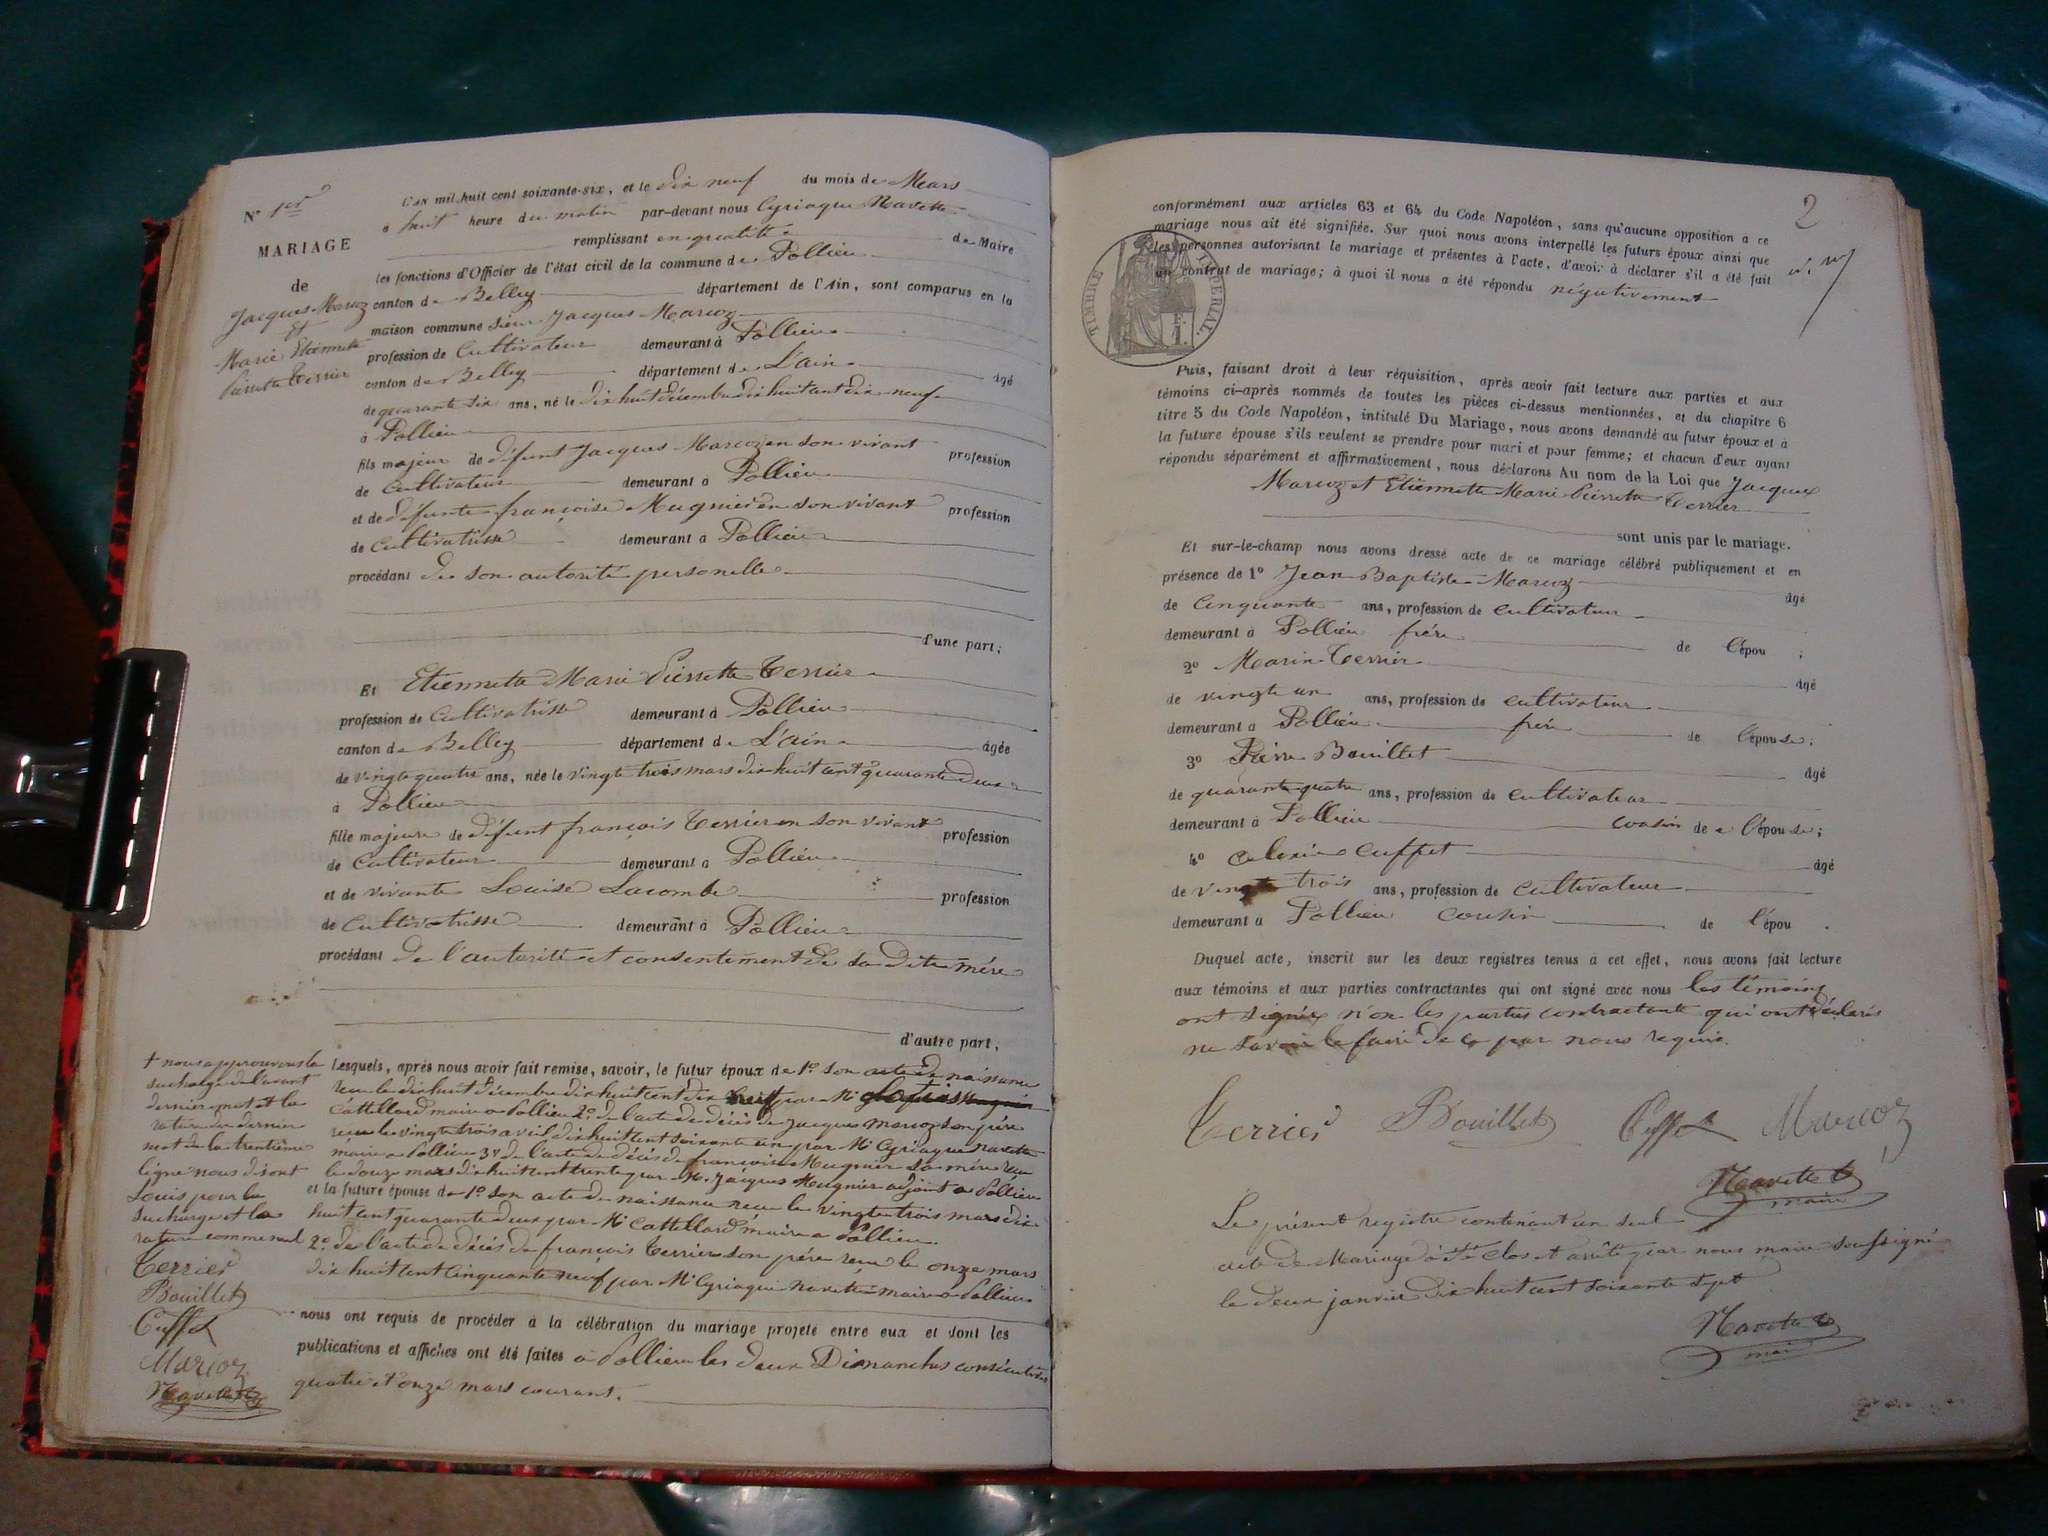 N° 1er
MARIAGE
de
Jacques Marcoz
Et
Marie Etiennette
Pierrette Terrier
L'an mil huit cent soixante-six, et le dix neuf du mois de Mars
à huit heure du matin par-devant nous Cyriaque Navette
remplissant en qualité de Maire
les fonctions d'Officier de l'état civil de la commune de Pollieu
canton de Belley département de l'Ain, sont comparus en la
maison commune sieur Jacques Marcoz
profession de Cultivateur demeurant à Pollieu
canton de Belley département de L'ain âgé
de quarante six ans, né le dix huit décembre dix huit cent dix neuf
à Pollieu
fils majeur de défunt Jacques Marcoz en son vivant profession
de Cultivateur demeurant à Pollieu
et de defunte françoise Mugnier en son vivant profession
de Cultivatrisse demeurant à Pollieu
procédant de son autorité personelle
d'une part;
Et Etiennette Marie Pierrette Terrier
profession de Cultivatrisse demeurant à Pollieu
canton de Belley département de L'ain âgée
de vingt quatre ans, née le vingt trois mars dix huit cent quarante deux
à Pollieu
fille majeure de défunt françois Terrier en son vivant profession
de Cultivateur demeurant à Pollieu
et de vivante Louise Lacombe profession
de Cultivatrisse demeurant à Pollieu
procédant de l'autorité et consentement de sa dite mère
d'autre part,
Lesquels, après nous avoir fait remise, savoir, le futur époux de 1° son acte de naissance
reçu le dix huit décembre dix huit cent dix neuf par Mr
Cattellard maire a Pollieu 2° de l'acte de décès de Jacques Marcoz son père
reçu le vingt trois avril dix huit cent soixante un par Mr Cyriaque navette
maire a Pollieu 3° de l'acte de décès de françoise Mugnier sa mère reçu
le douze mars dix huit cent trente par Mr Jacques Mugnier adjoint a Pollieu
et la future épouse de 1° son acte de naissance reçu le vingt trois mars dix
huit cent quarante deux par Mr Cattellard maire a Pollieu.
2° de l'acte de décès de françois Terrier son père reçu le onze mars
dix huit cent cinquante neuf par Mr Cyriaque navette maire a Pollieu
nous ont requis de procéder à la célébration du mariage projeté entre eux et dont les
publications et affiches ont été faites à Pollieu les deux Dimanches consécutifs
quatre et onze mars courant.
+ nous approuvons la
surcharge de l'avant
dernier mot et la
rature du dernier
mot de la trentième
ligne nous disont
Louis pour la
surcharge et la
rature comme nul
Terrier
Bouillet
Cuffet
Marcoz
Navette
2
conformément aux articles 63 et 64 du Code Napoléon, sans qu'aucune opposition a ce
mariage nous ait été signifiée. Sur quoi nous avons interpellé les futurs époux ainsi que
les personnes autorisant le mariage et présentes à l'acte, d'avoir à déclarer s'il a été fait
un contrat de mariage; à quoi il nous a été répondu négativement
TIMBRE IMPERIAL.
Puis, faisant droit à leur réquisition, après avoir fait lecture aux parties et aux
témoins ci-après nommés de toutes les pièces ci-dessus mentionnées, et du chapitre 6
titre 5 du Code Napoléon, intitulé Du Mariage, nous avons demandé au futur époux et à
la future épouse s'ils veulent se prendre pour mari et pour femme; et chacun d'eux ayant
répondu séparément et affirmativement, nous déclarons Au nom de la Loi que Jacques
Marcoz et Etiennette Marie Pierrette Terrier
sont unis par le mariage.
Et sur-le-champ nous avons dressé acte de ce mariage célébré publiquement et en
présence de 1° Jean Baptiste Marcoz âgé
de Cinquante ans, profession de cultivateur
demeurant à Pollieu frère de l'épou ;
2° Marin Terrier âgé
de vingt un ans, profession de cultivateur
demeurant a Pollieu frère de l'épouse;
3° Pierre Bouillet âgé
de quarante quatre ans, profession de cultivateur
demeurant à Pollieu cousin de l'épouse;
4° Cuffet âgé
de vingt trois ans, profession de cultivateur
demeurant a Pollieu cousin de l'épou .
Duquel acte, inscrit sur les deux registres tenus à cet effet, nous avons fait lecture
aux témoins et aux parties contractantes qui ont signé avec nous les témoins
ont signés non les parties contractante qui ont déclarés
ne savoir le faire de ce par nous requis.
Terrier Bouillet Cuffet Marcoz
Navette
maire
Le présent registre contenant un seul
acte de Mariage à été clos et arrêté par nous maire soussigné
le deux janvier dix huit cent soixante sept
Navette
maire